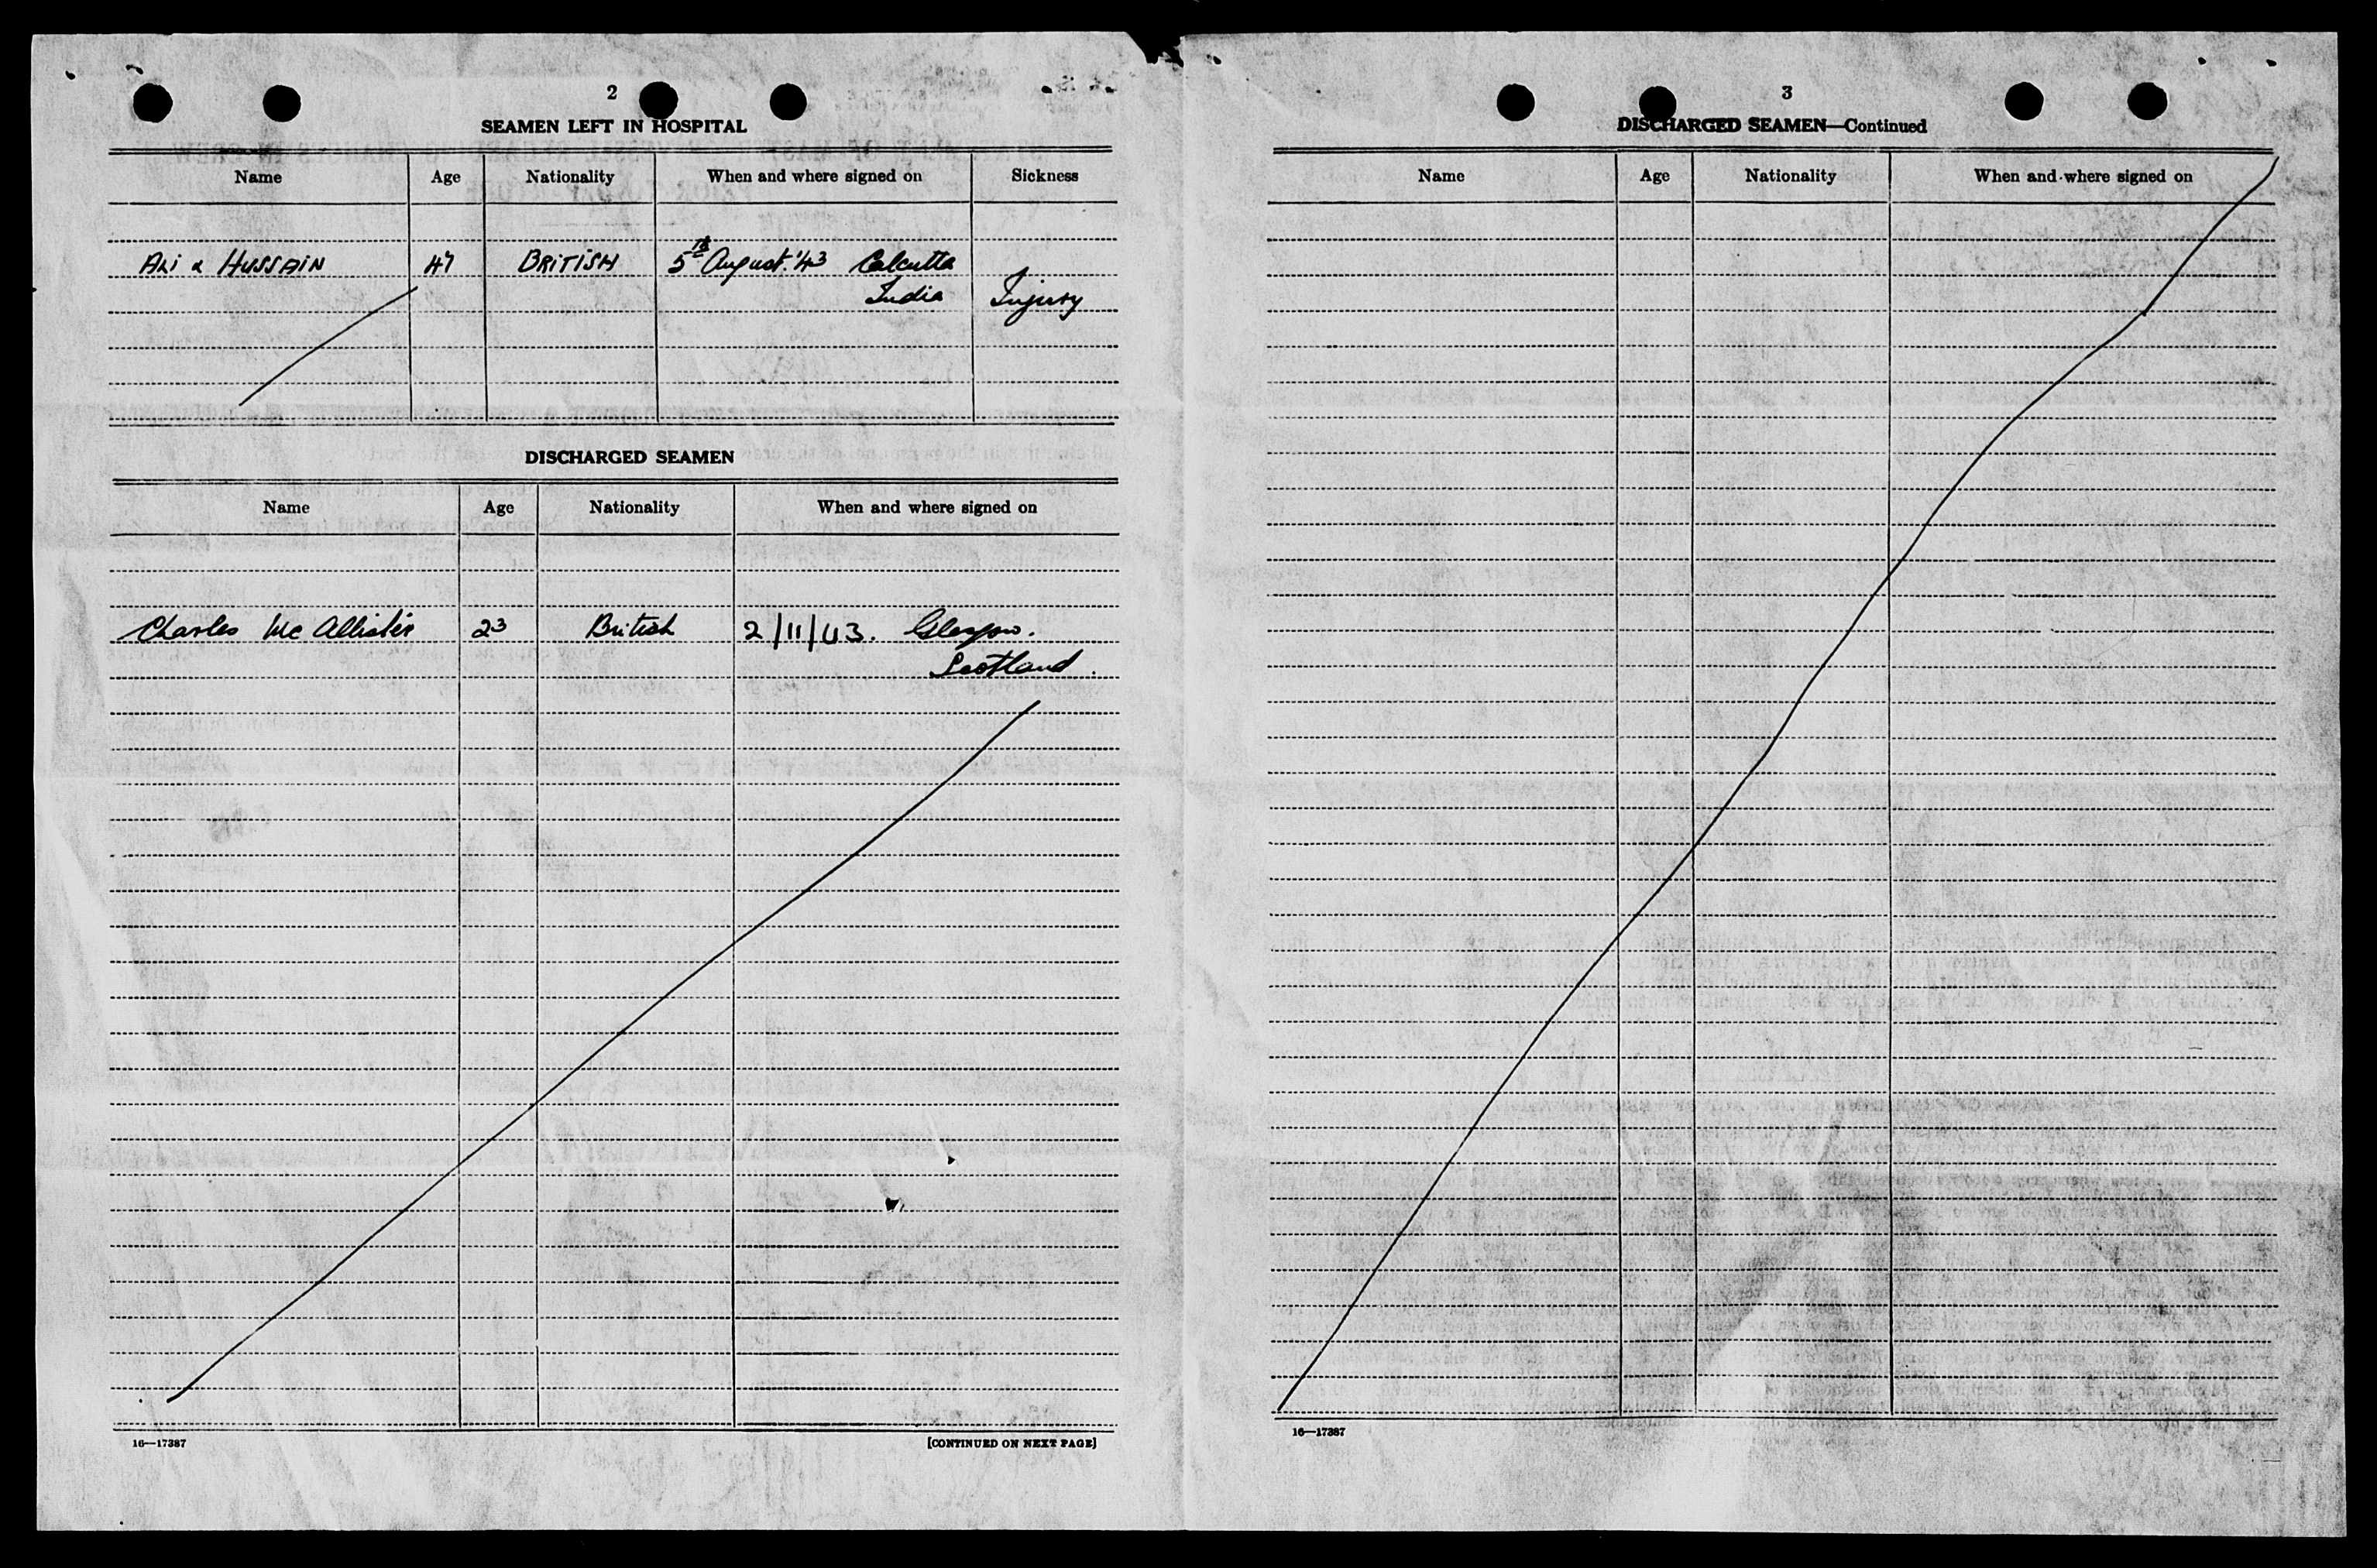 2
SEAMEN LEFT IN HOSPITAL
Name Age Nationality When and where signed on Sickness
ALi & HUSSAiN 47 BRiTiSH 5th August.'43 Calcutta
India Injury
DISCHARGED SEAMEN
Name Age Nationality When and where signed on
Charles McAllister 23 British 2/11/43. Glasgow.
Scotland.
16—17387 [CONTINUED ON NEXT PAGE]
3
DISCHARGED SEAMEN—Continued
Name Age Nationality When and where signed on
16—17387